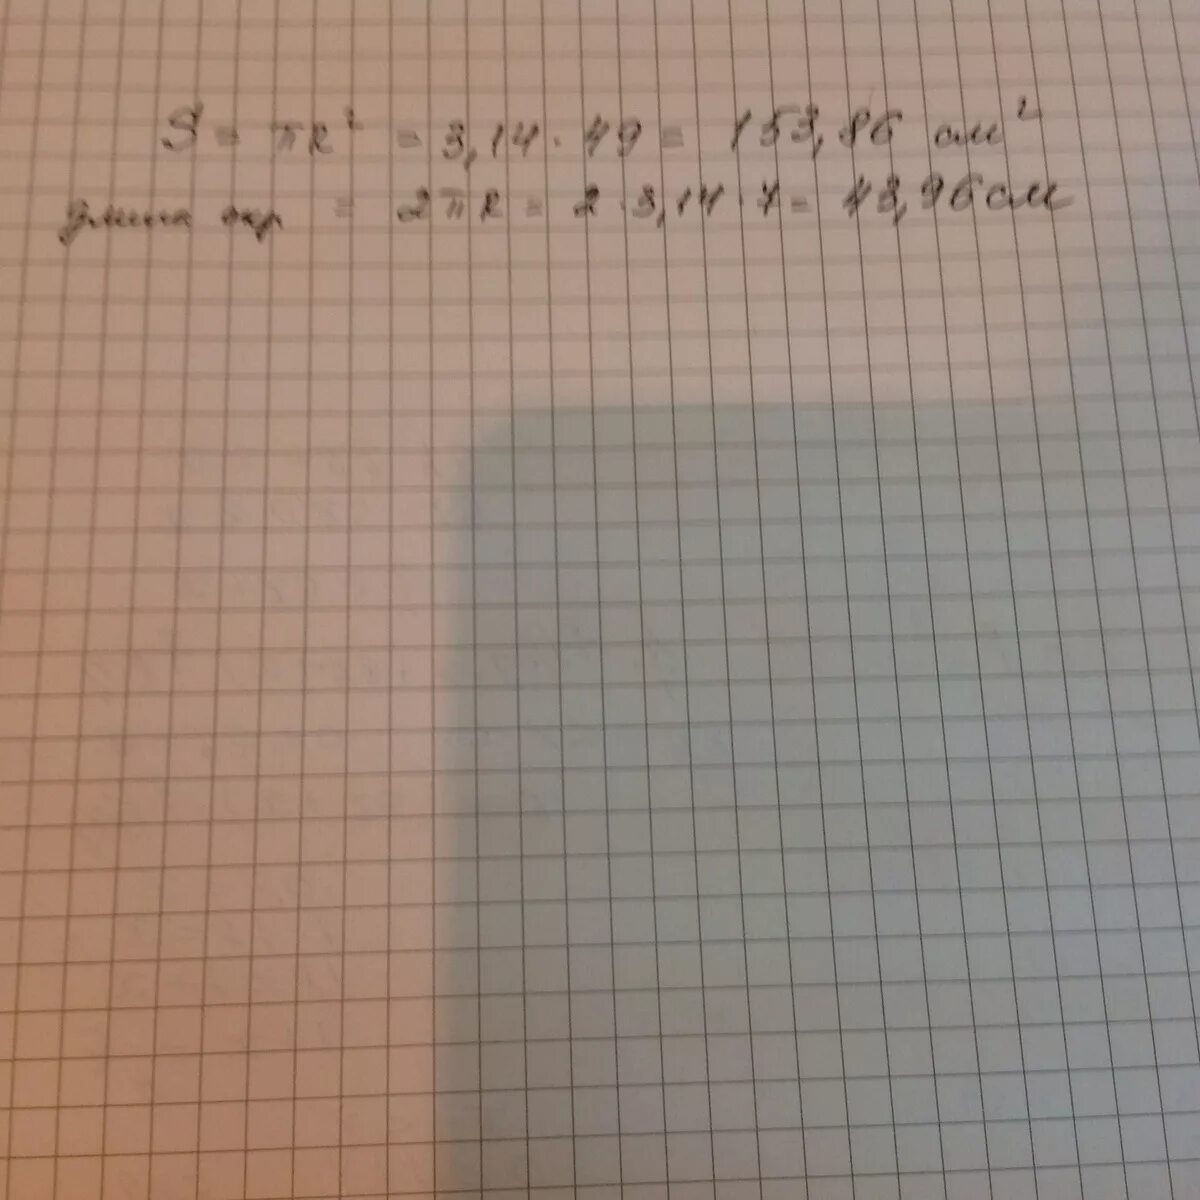 S = πR² = 3,14 · 49 = 153,86 см²
длина окр = 2πR = 2 · 3,14 · 7 = 43,96 см